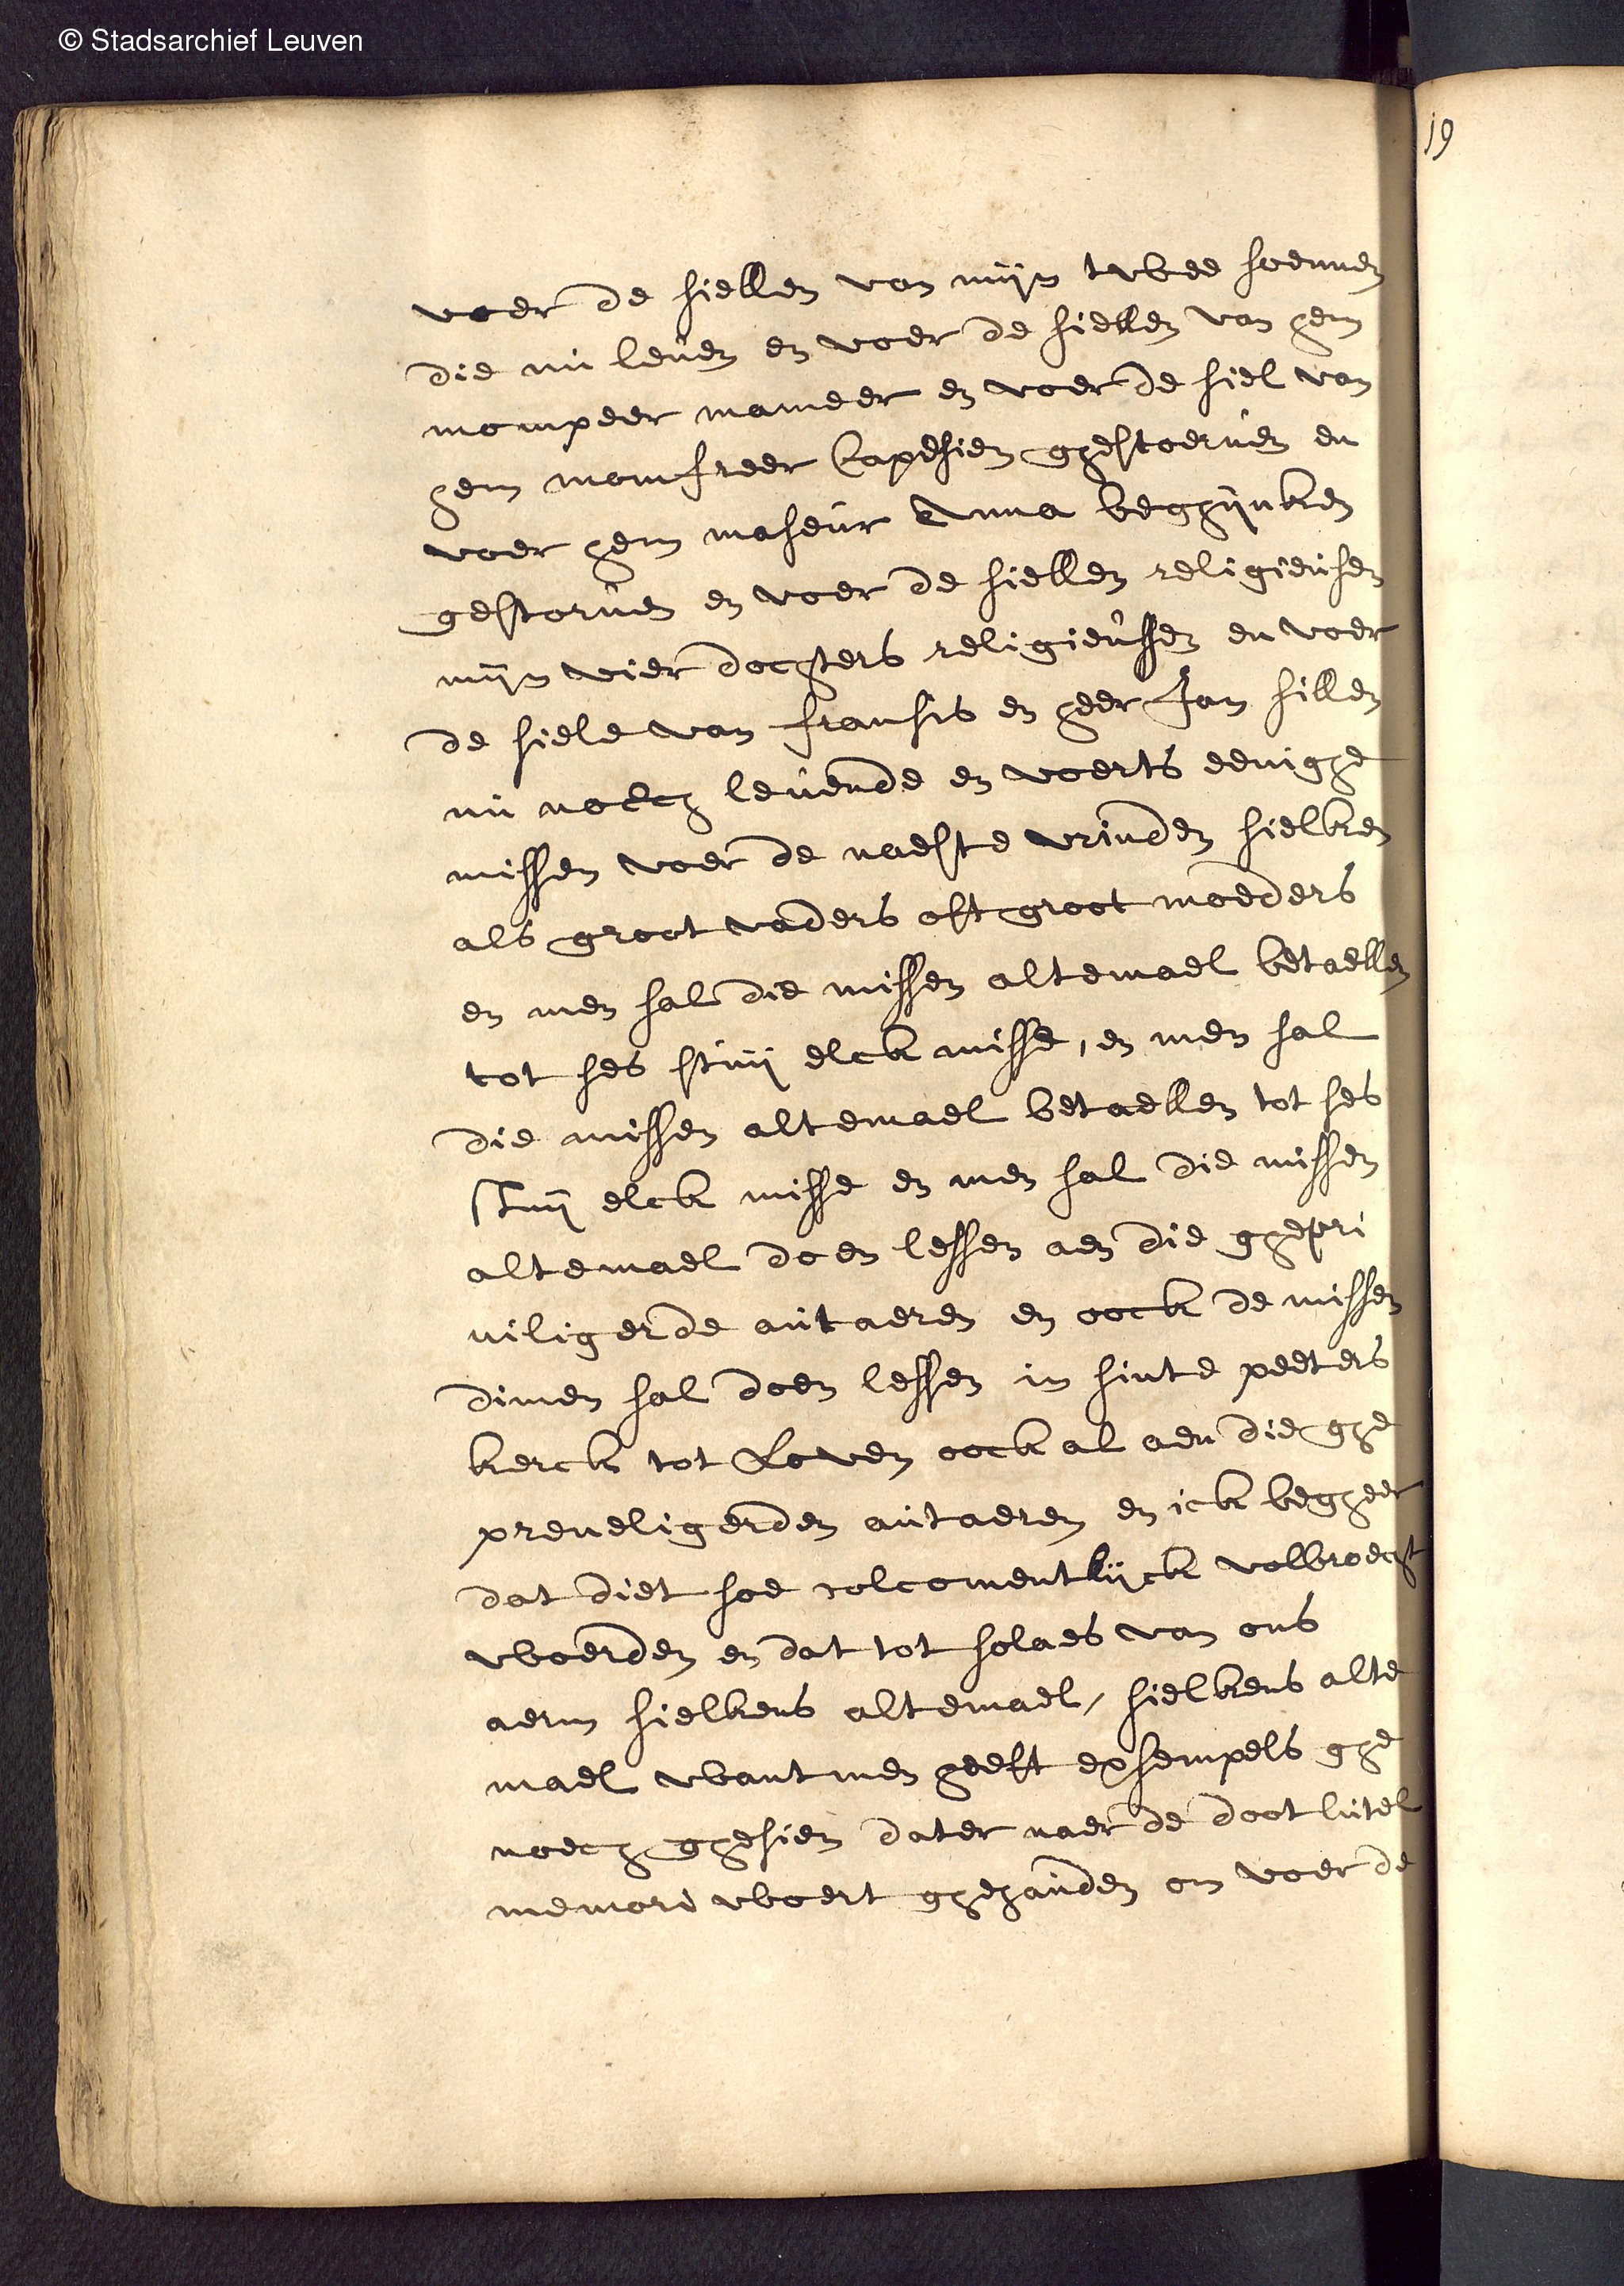 © Stadsarchief Leuven
19
voer de siellen van mijn twee soennen
die nu leuen en voer de siellen van hem
mompeer mameer en voer de siel van
hem momfreer Capesien ghestoeruen en
voer hem maseur Anna beghijnken
gestoruen en voer de siellen religieusen
mijn vier dochters religieussen en voer
de siele van fransis en heer Jan sillen
nu noech leuende en voerts eenighe
missen voer de naeste vrinden sielken
als groot vaders oft groot moeders
en men sal die missen altemael betaellen
tot ses stuij elck misse, en men sal
die missen altemael betaellen tot ses
stuij elck misse en men sal die missen
altemael doen lessen aen die ghepri
uiligerde autaeren en oock de missen
dimen sal doen lessen in sinte peeters
kerck tot Loven oock al aen die ghe
preueligerden autaeren en ick begheer
dat diet soe volcomentlijck volbroecht
woerden en dat tot solaes van ons
aerm sielkens altemael, sielkens alte
mael want men heeft exsempels ghe
noech ghesien dater naer de doot lutel
memori woert ghehauden om voer de